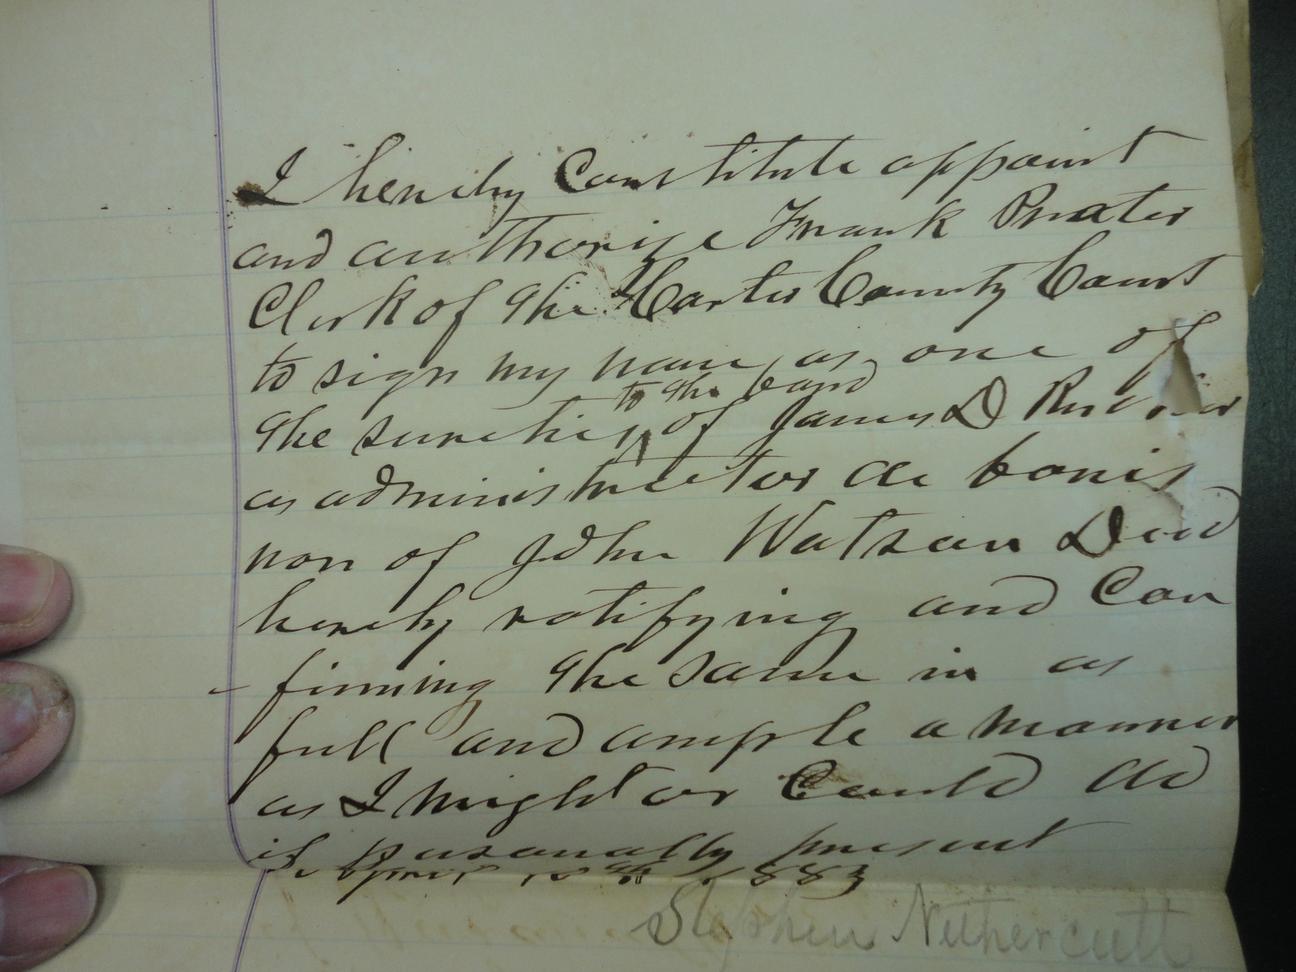 I hereby Constitute appoint
and authorize Frank Prater
Clerk of the Carter County Court
to sign my name as one of
to the bond
the sureties of James D
as administrator de bonis
non of John Watson Decd
hereby ratifying and Con
firming the same in as
full and ample a manner
as I might or Could do
if personally present
April 1883
Stephen Nethercutt